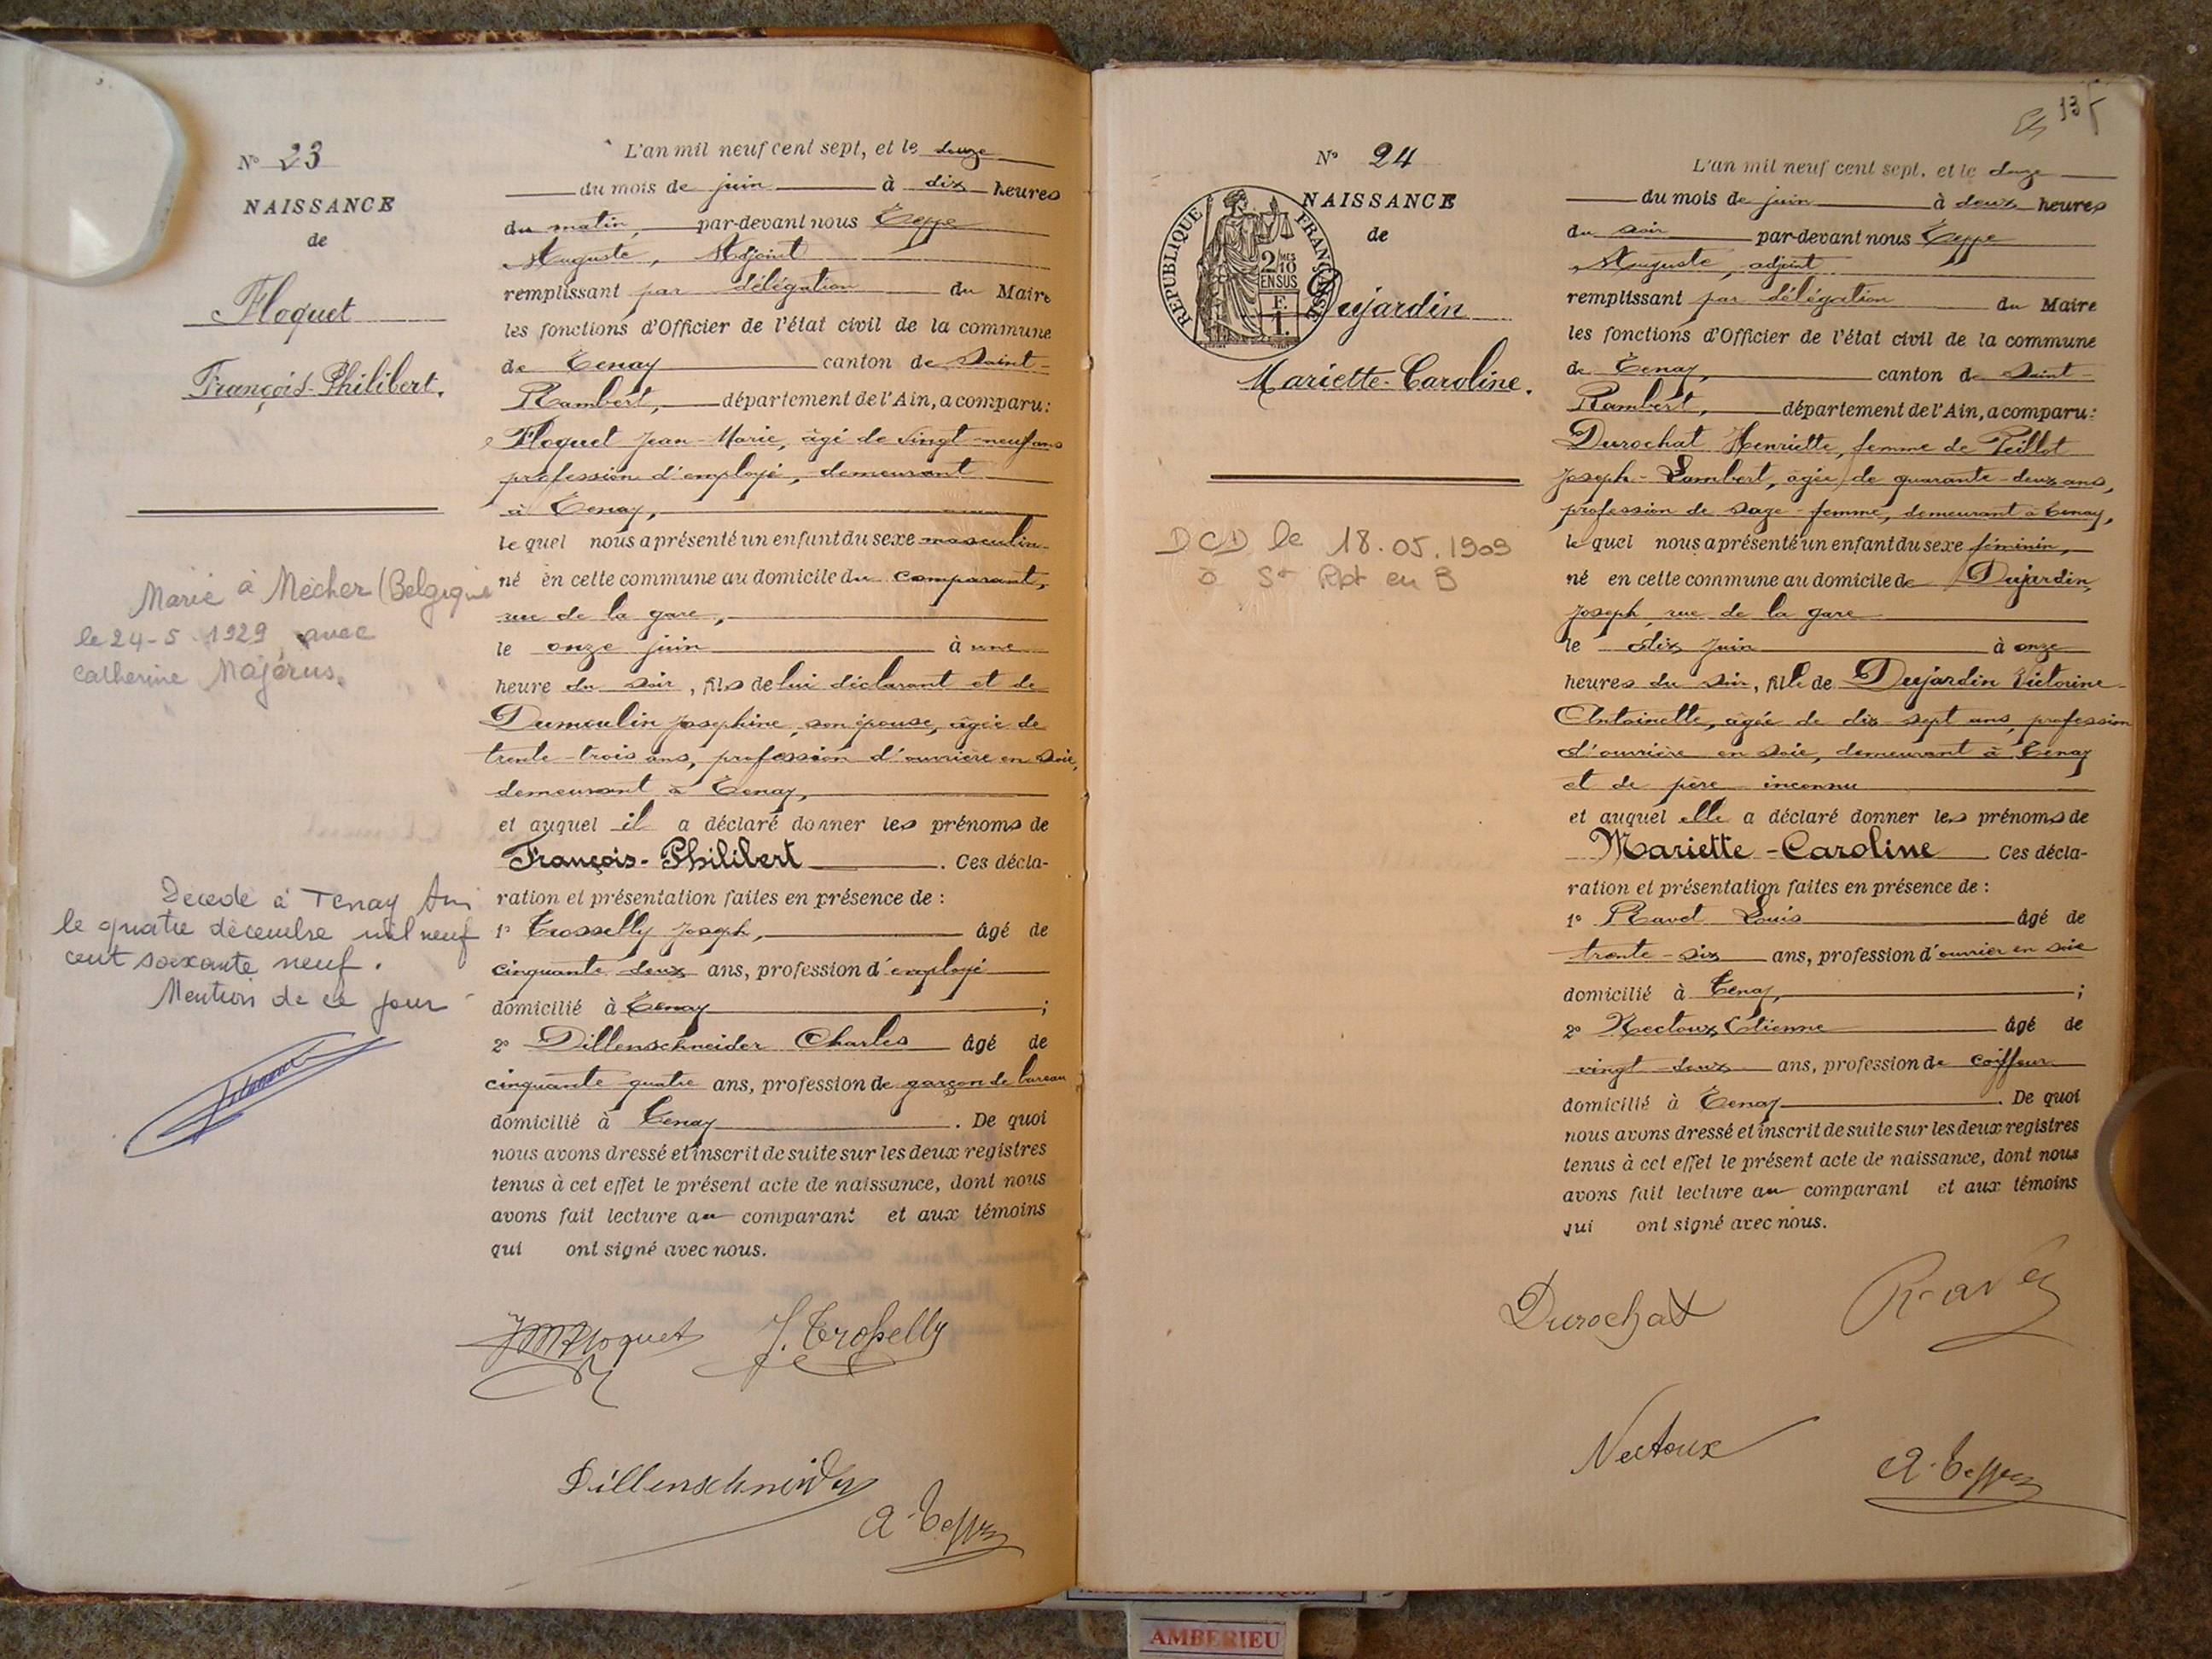 N° 23
NAISSANCE
de
Floquet
François-Philibert.
Marié à Mecher (Belgique
le 24-5-1929 avec
Catherine Majerus.
Decede à Tenay Ain
le quatre décembre mil neuf
cent soixante neuf.
Mention de ce jour
L'an mil neuf cent sept, et le douze
du mois de juin à dix heures
du matin, par-devant nous Teppe
Auguste, Adjoint
remplissant par délégation du Maire
les fonctions d'Officier de l'état civil de la commune
de Tenay canton de Saint-
Rambert, département de l'Ain, a comparu:
Floquet Jean-Marie, âgé de vingt-neuf ans
profession d'employé, demeurant
à Tenay,
lequel nous a présenté un enfant du sexe masculin
né en cette commune au domicile du comparant,
rue de la gare,
le onze juin à une
heure du soir, fils de lui déclarant et de
Dumoulin Josephine, son épouse, âgée de
trente-trois ans, profession d'ouvrière en soie,
demeurant à Tenay,
et auquel il a déclaré donner les prénoms de
François-Philibert. Ces décla-
ration et présentation faites en présence de :
1° Trosselly Joseph, âgé de
cinquante deux ans, profession d'employé
domicilié à Tenay ;
2° Dillenschneider Charles âgé de
cinquante quatre ans, profession de garçon de bureau
domicilié à Tenay. De quoi
nous avons dressé et inscrit de suite sur les deux registres
tenus à cet effet le présent acte de naissance, dont nous
avons fait lecture au comparant et aux témoins
qui ont signé avec nous.
JMFloquet J. Trosselly
Dillenschneider
A. Teppe
13
N° 24
NAISSANCE
de
REPUBLIQUE FRANÇAISE
2/10 MES
EN SUS
F.
1.
Dujardin
Mariette-Caroline.
DCD le 18.05.1909
à St Rbt en B
L'an mil neuf cent sept, et le douze
du mois de juin à deux heures
du soir par-devant nous Teppe
Auguste, adjoint
remplissant par délégation du Maire
les fonctions d'Officier de l'état civil de la commune
de Tenay, canton de Saint-
Rambert, département de l'Ain, a comparu:
Durochat Henriette, femme de Peillot
Joseph-Lambert, âgée de quarante-deux ans,
profession de sage-femme, demeurant à Tenay,
lequel nous a présenté un enfant du sexe féminin,
né en cette commune au domicile de Dujardin,
Joseph, rue de la gare
le dix juin à onze
heures du soir, fille de Dujardin Victorine-
Antoinette, âgée de dix-sept ans, profession
d'ouvrière en soie, demeurant à Tenay
et de père inconnu
et auquel elle a déclaré donner les prénoms de
Mariette-Caroline Ces décla-
ration et présentation faites en présence de :
1° Ravet Louis âgé de
trente-six ans, profession d'ouvrier en soie
domicilié à Tenay, ;
2° Nectoux Etienne âgé de
vingt-deux ans, profession de coiffeur
domicilié à Tenay. De quoi
nous avons dressé et inscrit de suite sur les deux registres
tenus à cet effet le présent acte de naissance, dont nous
avons fait lecture au comparant et aux témoins
qui ont signé avec nous.
Durochat Ravet
Nectoux A. Teppe
AMBERIEU